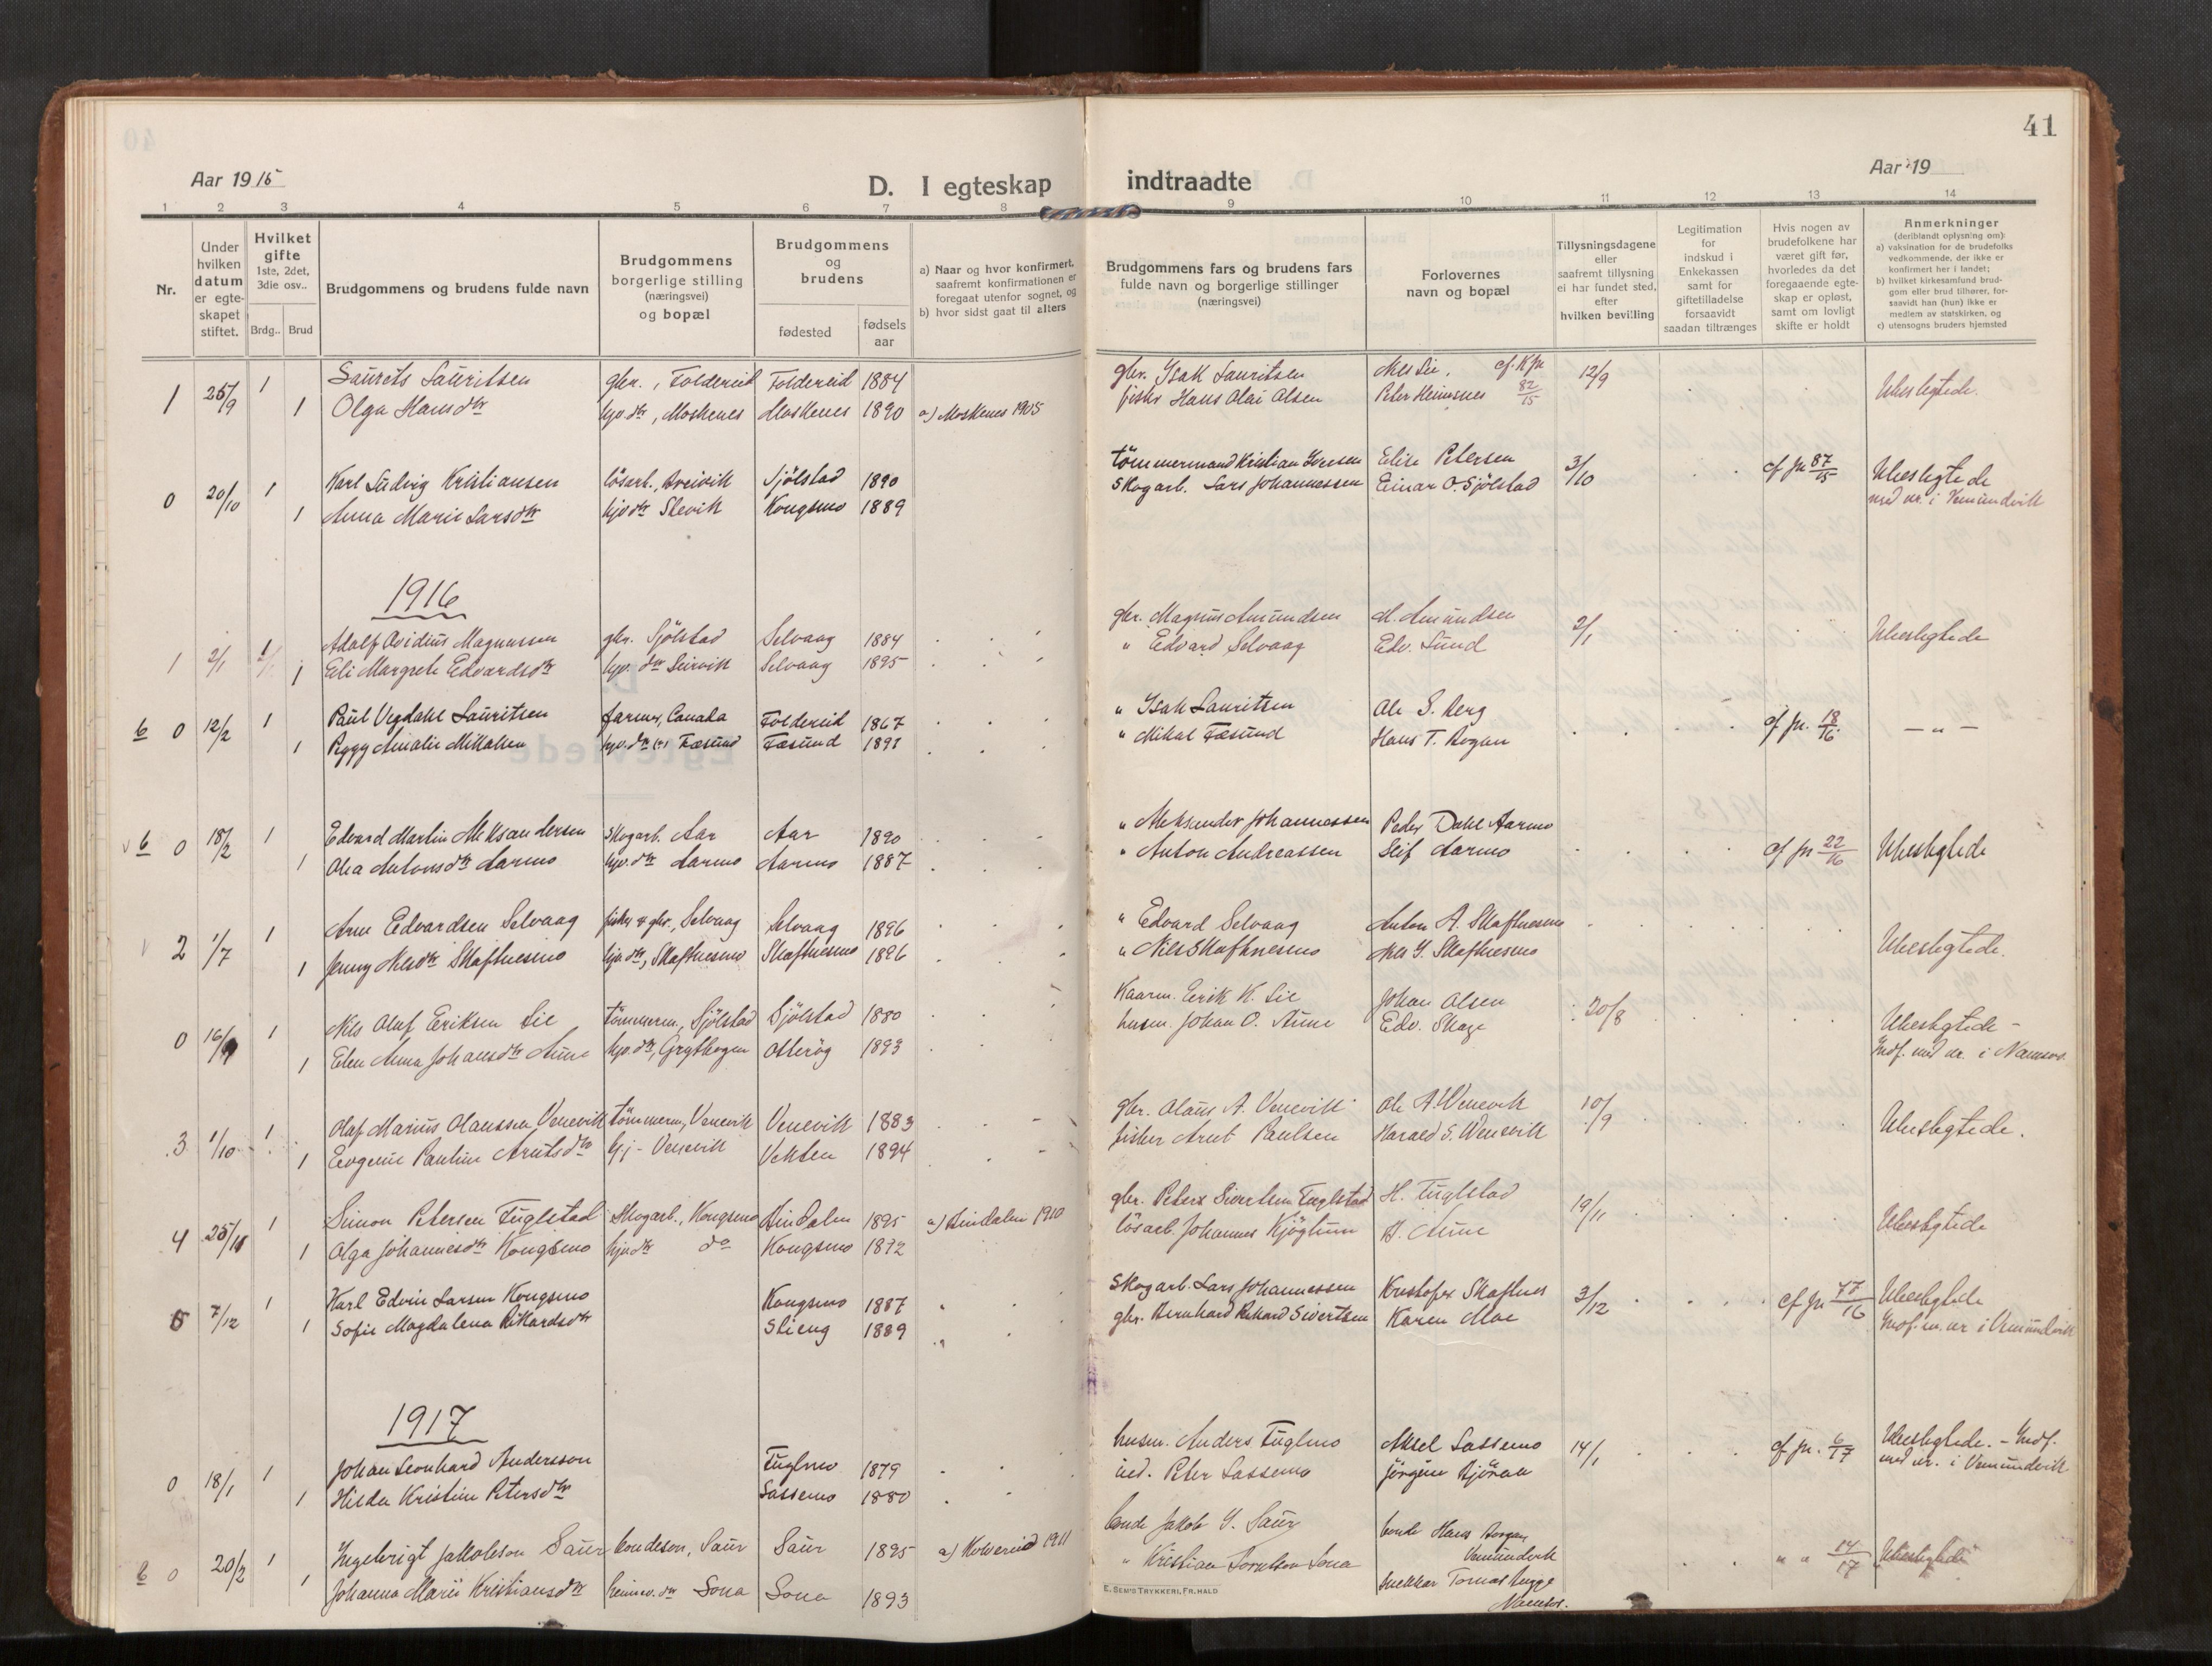 41
Aar 1915
D. I egteskap indtraadte
Aar 19
1 2 3 4 5 6 7 8 9 10 11 12 13 14
Nr.
Under hvilken datum er egte-skapet stiftet.
Hvilket gifte 1ste, 2det, 3die osv..
Brdg.. Brud
Brudgommens og brudens fulde navn
Brudgommens borgerlige stilling (næringsvei) og bopæl
Brudgommens og brudens
fødested
fødsels aar
a) Naar og hvor konfirmert, saafremt konfirmationen er foregaat utenfor sognet, og
b) hvor sidst gaat til alters
Brudgommens fars og brudens fars fulde navn og borgerlige stillinger (næringsvei)
Forlovernes navn og bopæl
Tillysningsdagene eller saafremt tillysning ei har fundet sted, efter hvilken bevilling
Legitimation for indskud i Enkekassen samt for giftetilladelse forsaavidt saadan tiltrænges
Hvis nogen av brudefolkene har været gift før, hvorledes da det foregaaende egte-skap er opløst, samt om lovligt skifte er holdt
Anmerkninger (deriblandt oplysning om):
a) vaksination for de brudefolks vedkommende, der ikke er konfirmert her i landet;
b) hvilket kirkesamfund brud-gom eller brud tilhører, for-saavidt han (hun) ikke er medlem av statskirken, og
c) utensogns bruders hjemsted
1 25/9 1 Laurits Lauritsen gbr., Foldereid Foldereid 1884 gbr. Isak Lauritsen 12/9 Ubeslegtede.
1 Olga Hansdtr , Moskenes Moskenes 1890 a) Moskenes 1905 fisker Hans Olai Olsen 82/15
0 20/10 1 Karl Ludvig Kristiansen löserb., Breivik Sjölstad 1890 tömmermand Kristian Iversen Elise Petersen 3/10 cf jn 87/15 Ubeslegtede
1 Anna Marie Larsdtr Kongsmo 1889 Skogarb. Lars Johannessen Einar O. Sjölstad med nr. i Vemundvik
1916
1 2/1 1 Adolf Ovidius Magnussen gbr. Sjölstad Selvaag 1884 gbr. Magnus Amundsen M. Amundsen 2/1 Ubeslegtede
1 Eli Margrete Edvardsdtr Selvaag 1895 " Edvard Selvaag Edv. Lund
6 0 12/2 1 Paul Vegdahl Lauritsen farmer, Canada Foldereid 1867 " Isak Lauritsen Ole S. Berg cf jn. 18/16 - " -
1 Peggy Amalie Mikalsen Fæsund 1898 " Mikal Fæsund Hans T. Rogan
6 0 18/2 1 Edvard Martin Aleksandersen Skogarb. Aar Aar 1890 " Aleksander Johannessen Peder Dahl Aarmo cf jn 22/16 Ubeslegtede
1 Olea Antonsdtr Aarmo Aarmo Aarmo 1887 " Anton Andreassen Leif Aarmo
2 1/7 1 Arne Edvardsen Selvaag fisker & gbr., Selvaag Selvaag 1896 " Edvard Selvaag Anton A. Skaftnesmo Ubeslegtede.
1 Jenny Nilsdtr Skaftnesmo , Skaftnesmo Skaftnesmo 1896 " Nils Skaftnesmo Skaftnesmo
0 16/9 1 Nils Olaf Eriksen Lie tömmerm., Sjölstad Sjölstad 1880 Kaarm. Erik K. Lie Johan Olsen 20/8 Ubeslegtede -
1 Elen Anna Johansdtr Aune Otteröy 1893 husm. Johan O. Aune Edv. Skage Indf. med nr. i Namsos
3 1/10 1 Olaf Marius Olaussen Venevik tömmerm, Venevik Venevik 1883 gbr. Olaus A. Venevik Ole A. Venevik 10/9 Ubeslegtede.
1 Eugenie Pauline Arntsdtr Venevik Vekten 1894 fisker Arnt Paulsen Harald S. Venevik
4 25/11 1 Simon Petersen Fuglstad Skogarb., Kongsmo Lindalen 1895 a) Lindalen 1910 gbr. Peter Sivertsen Fuglstad H. Fuglstad 19/11 Ubeslegtede
1 Olga Johannesdtr Kongsmo do Kongsmo 1872 lösarb. Johannes Kjöglum A. Aune
5 7/12 1 Karl Edvin Larsen Kongsmo Kongsmo 1887 Skogarb. Lars Johannessen Kristofer Skaftnes 3/12 cf jn 77/16 Ubeslegtede
1 Sofie Magdalena Rikardsdtr 1889 gbr. Bernhard Rikard Sivertsen Karen Moe Indf. m. nr i Vemundvik
1917
0 18/1 1 Johan Leonhard Andersson Fuglmo 1879 husm. Anders Fuglmo Aksel Lassemo 14/1 cf jn. 6/17 Ubeslegtede. - Indf.
1 Hilda Kristine Petersdtr Lassemo 1880 ind. Peter Lassemo Jörgen Björaa med nr. i Vemundvik
6 0 20/2 1 Ingebrigt Jakobsen Saur bondesön, Saur Saur 1895 a) Kolvereid 1911 bonde Jakob Saur bonde Hans Rogan " " 14/17 Ubeslegtede
1 Johanna Marie Kristiansdtr Sona Sona 1893 " Kristian Sona Vemundvik
snekker Tomas
Namsos.
E. SEM'S TRYKKERI, FR.HALD